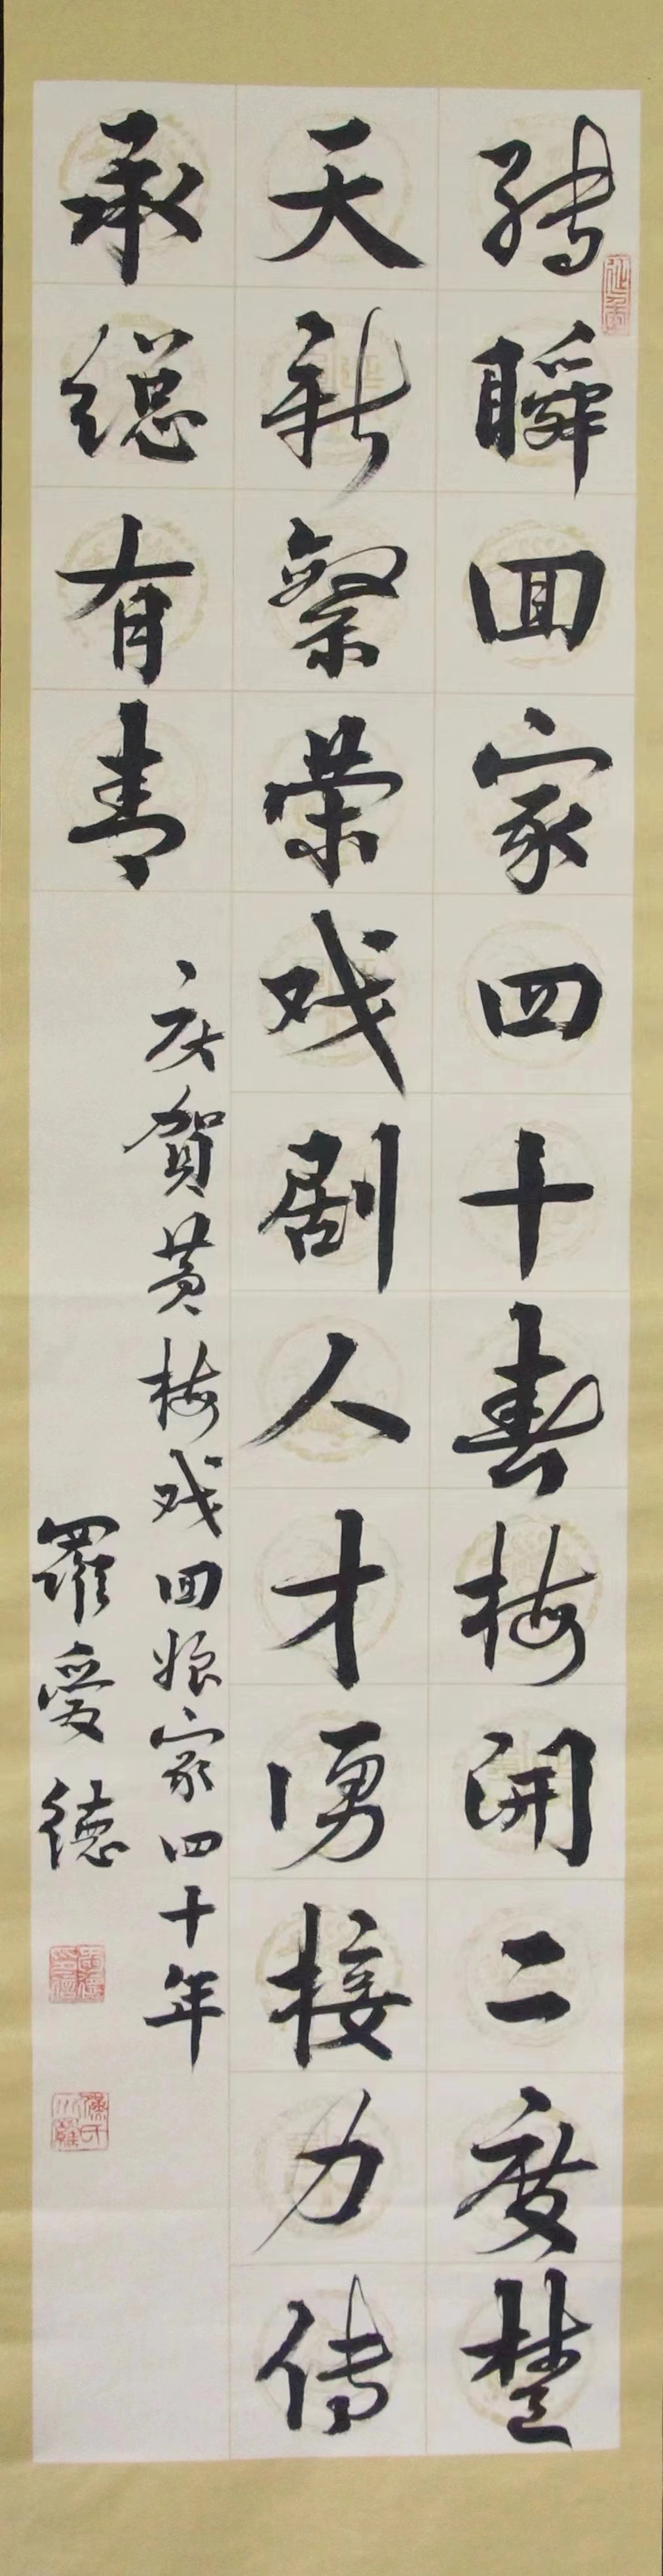 转瞬回家四十春梅開二度楚
天新繁荣戏剧人才湧接力传
承總有青
庆贺黄梅戏回娘家四十年
羅愛德